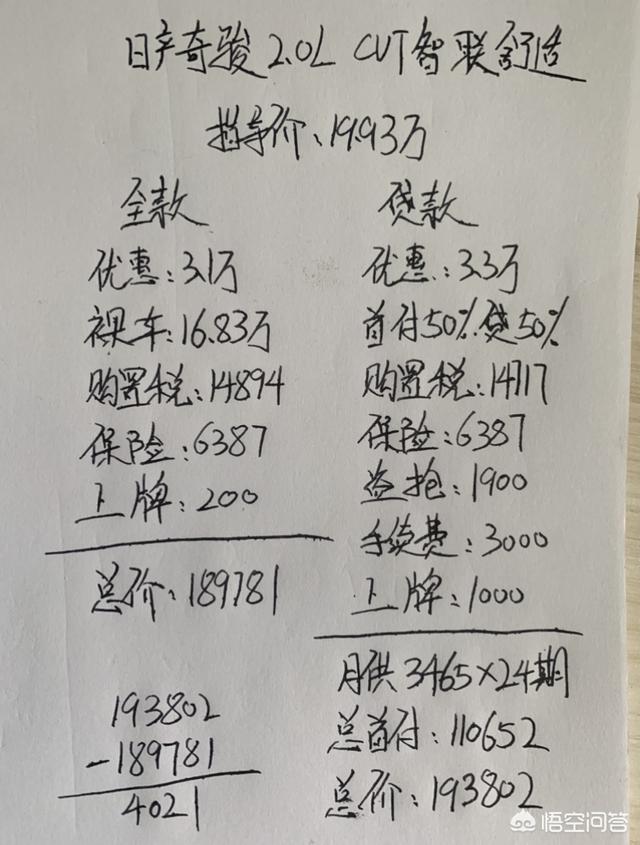 日产奇骏2.0L CVT智联舒适
指导价:19.93万
全款
优惠:3.1万
裸车:16.83万
购置税:14894
保险:6387
上牌:200
总价:189781
193802
-189781
4021
贷款
优惠:3.3万
首付50% 贷50%
购置税:14717
保险:6387
盗抢:1900
手续费:3000
上牌:1000
月供3465×24期
总首付:110652
总价:193802
悟空问答